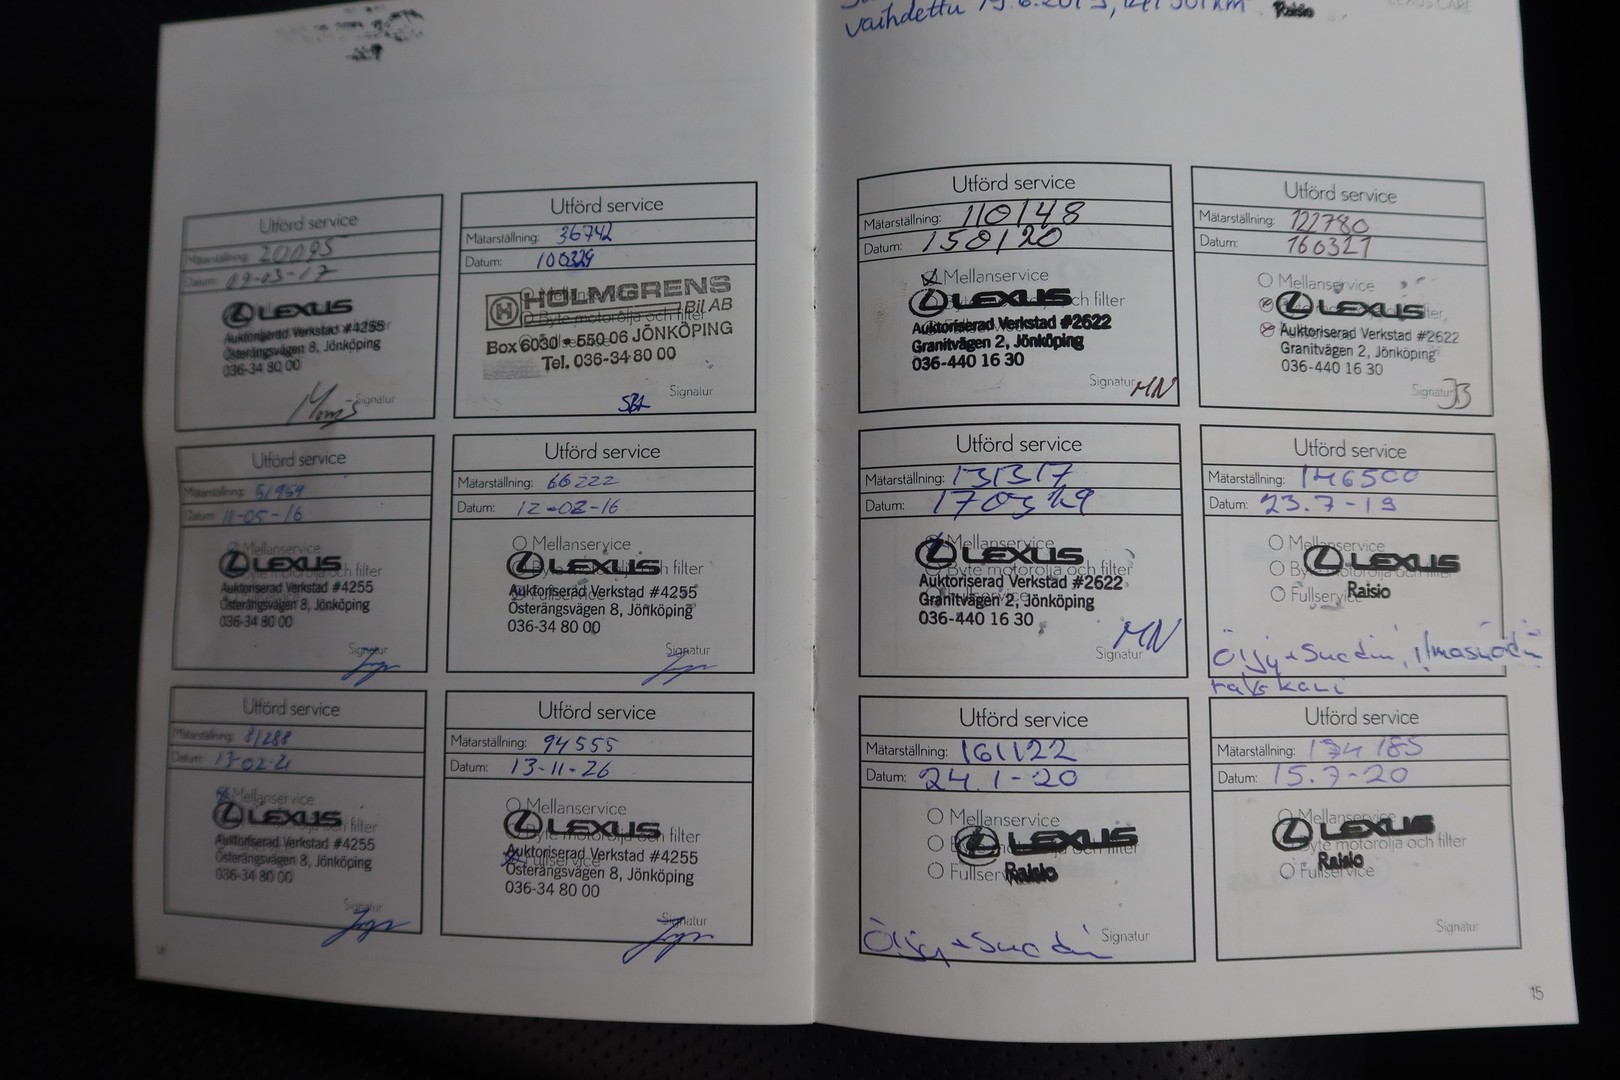 vaihdettu
Raisio
LEXUS CARE
Utförd service
Mätarställning: 20095
Datum: 09-03-17
LEXUS
Auktoriserad Verkstad #4255
Österängsvägen 8, Jönköping
036-34 80 00
Signatur
Utförd service
Mätarställning: 36742
Datum: 100329
HOLMGRENS
Bil AB
Byte motorolja och filter
Box 6030 • 550 06 JÖNKÖPING
Tel. 036-34 80 00
Signatur
Utförd service
Mätarställning: 51959
Datum: 11-05-16
Mellanservice
LEXUS
Byte motorolja och filter
Auktoriserad Verkstad #4255
Österängsvägen 8, Jönköping
036-34 80 00
Signatur
Utförd service
Mätarställning: 66222
Datum: 12-02-16
Mellanservice
LEXUS
Byte motorolja och filter
Auktoriserad Verkstad #4255
Österängsvägen 8, Jönköping
036-34 80 00
Signatur
Utförd service
Mätarställning: 81288
Datum: 13-02-21
Mellanservice
LEXUS
och filter
Auktoriserad Verkstad #4255
Österängsvägen 8, Jönköping
036-34 80 00
Signatur
Utförd service
Mätarställning: 94555
Datum: 13-11-26
Mellanservice
LEXUS
Byte motorolja och filter
Auktoriserad Verkstad #4255
Fullservice
Österängsvägen 8, Jönköping
036-34 80 00
Signatur
14
Utförd service
Mätarställning: 110148
Datum: 150120
Mellanservice
LEXUS
och filter
Auktoriserad Verkstad #2622
Granitvägen 2, Jönköping
036-440 16 30
Signatur MN
Utförd service
Mätarställning: 122780
Datum: 160321
Mellanservice
LEXUS
filter
Auktoriserad Verkstad #2622
Granitvägen 2, Jönköping
036-440 16 30
Signatur JB
Utförd service
Mätarställning: 131317
Datum: 170329
Mellanservice
LEXUS
Byte motorolja och filter
Auktoriserad Verkstad #2622
Granitvägen 2, Jönköping
036-440 16 30
Signatur MN
Utförd service
Mätarställning: 146500
Datum: 23.7-19
Mellanservice
LEXUS
Byte motorolja och filter
Fullservice
Raisio
Öljy+Suodin, ilmasuodin
Utförd service
Mätarställning: 161122
Datum: 24.1-20
Mellanservice
LEXUS
Fullservice
Raisio
Öljy+Suodin
Signatur
Utförd service
Mätarställning: 174185
Datum: 15.7-20
Mellanservice
LEXUS
Byte motorolja och filter
Raisio
Fullservice
Signatur
15